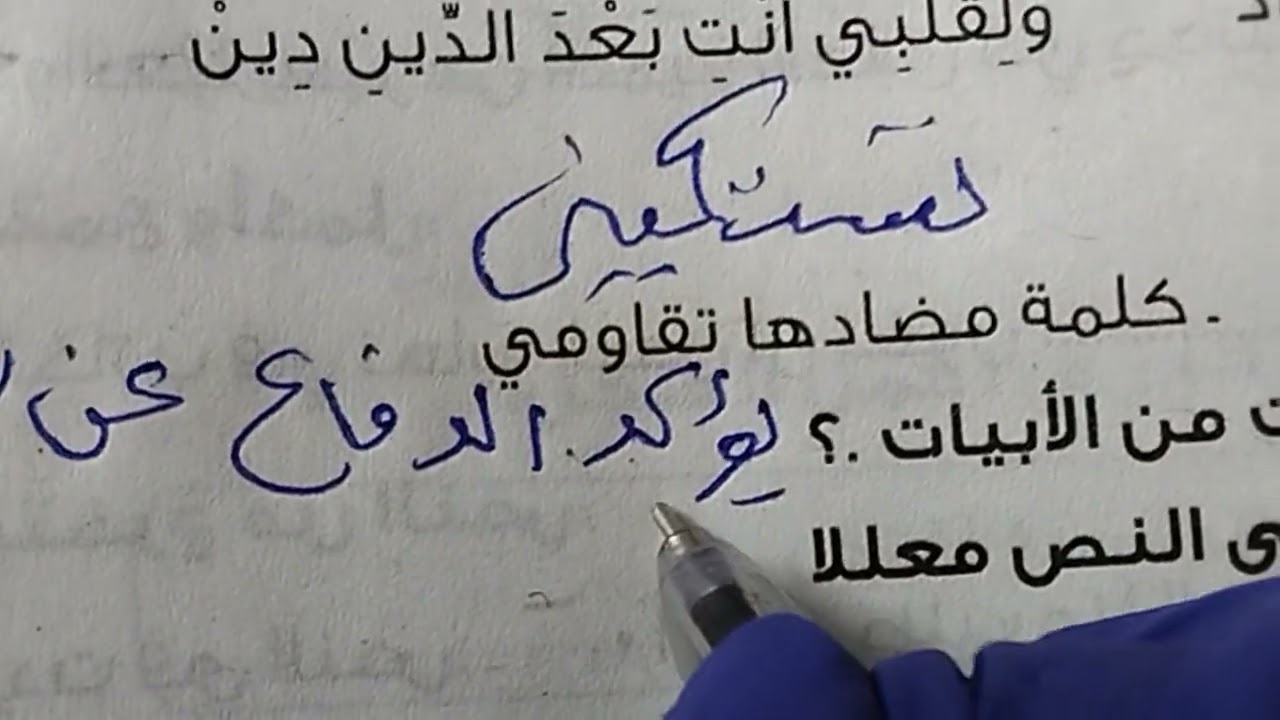 ولِقلبِي أنتِ بَعْدَ الدِّينِ دِينْ
تستكين
. كلمة مضادها تقاومي
من الأبيات .؟ يؤكد الدفاع عن
النص معللا